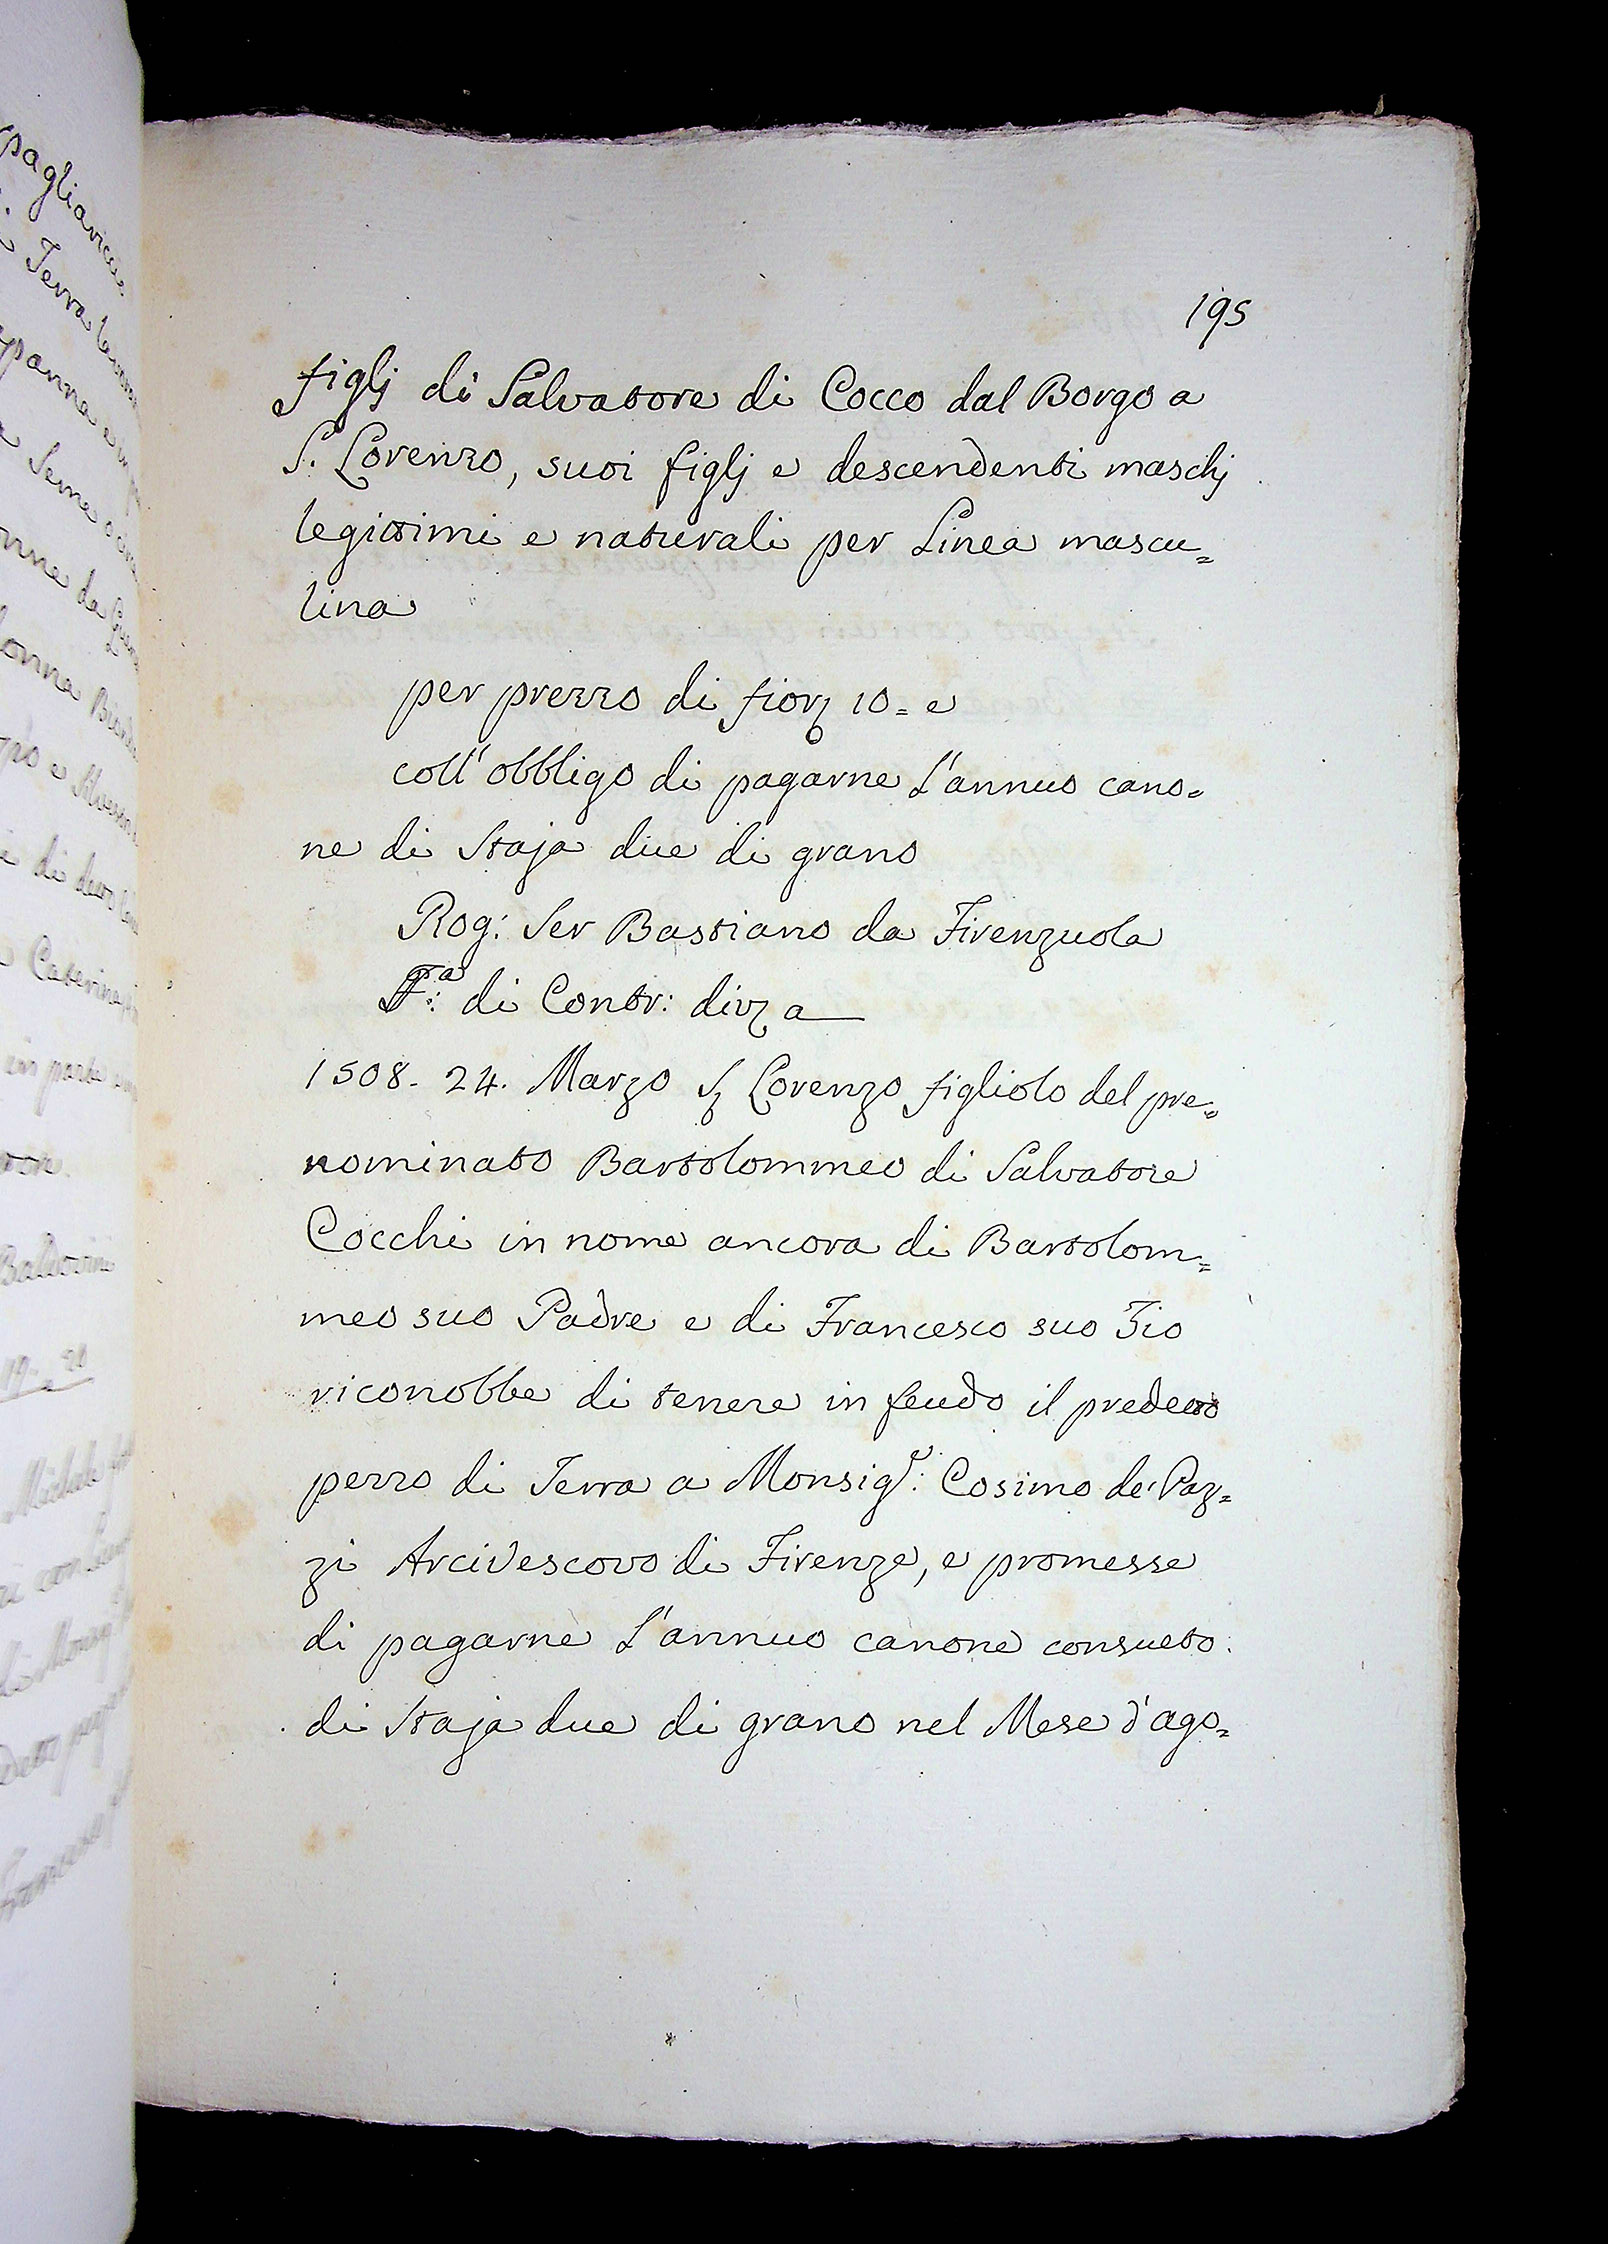 195
figlj di Salvatore di Cocco dal Borgo a
S. Lorenzo, suoi figlj e descendenti maschj
legittimi e naturali per Linea mascu=
lina
per prezzo di fior 10= e
coll'obbligo di pagarne L'annuo cano=
ne di Staja due di grano
Rog: Ser Bastiano da Firenzuola
Fa: di Contr: div a
1508. 24. Marzo S Lorenzo figliolo del pre=
nominato Bartolommeo di Salvatore
Cocchi in nome ancora di Bartolom=
meo suo Padre e di Francesco suo Zio
riconobbe di tenere in feudo il predetto
pezzo di Terra a Monsigr: Cosimo de' Paz=
zi Arcivescovo di Firenze, e promesse
di pagarne L'annuo canone consueto
di Staja due di grano nel Mese d'ago=